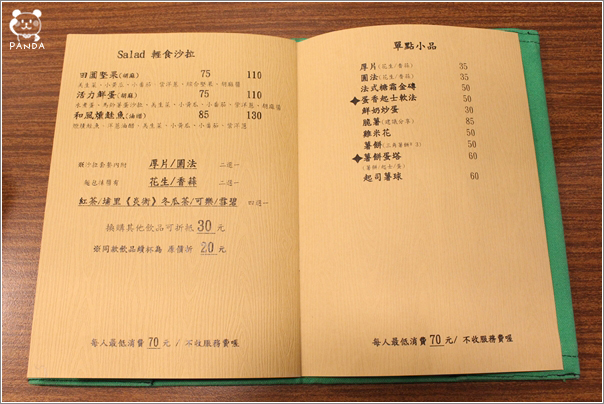 PANDA
Salad 輕食沙拉
田園堅果(胡麻) 75 110
馬生菜、小黃瓜、小番茄、紫洋蔥、綜合堅果、胡麻醬
活力鮮蛋(胡麻) 75 110
水煮蛋、馬鈴薯蛋沙拉、馬生菜、小黃瓜、小番茄、紫洋蔥、胡麻醬
和風燻鮭魚(油醋) 85 130
煙燻鮭魚、洋蔥油醋、馬生菜、小黃瓜、小番茄、紫洋蔥
厚片/圓法 二選一
花生/香蒜 二選一
紅茶/埔里《長街》冬瓜茶/可樂/雪碧 四選一
換購其他飲品可折抵 30 元
20 元
每人最低消費 70 元/ 不收服務費喔
單點小品
厚片(花生/香蒜) 35
圓法(花生/香蒜) 35
法式糖霜金磚 50
蛋香起士軟法 50
鮮奶炒蛋 30
脆薯(建議分享) 85
雞米花 50
薯餅(三角薯餅*3) 50
薯餅蛋塔 60
(薯餅/起士/蛋)
起司薯球 60
每人最低消費 70 元/ 不收服務費喔